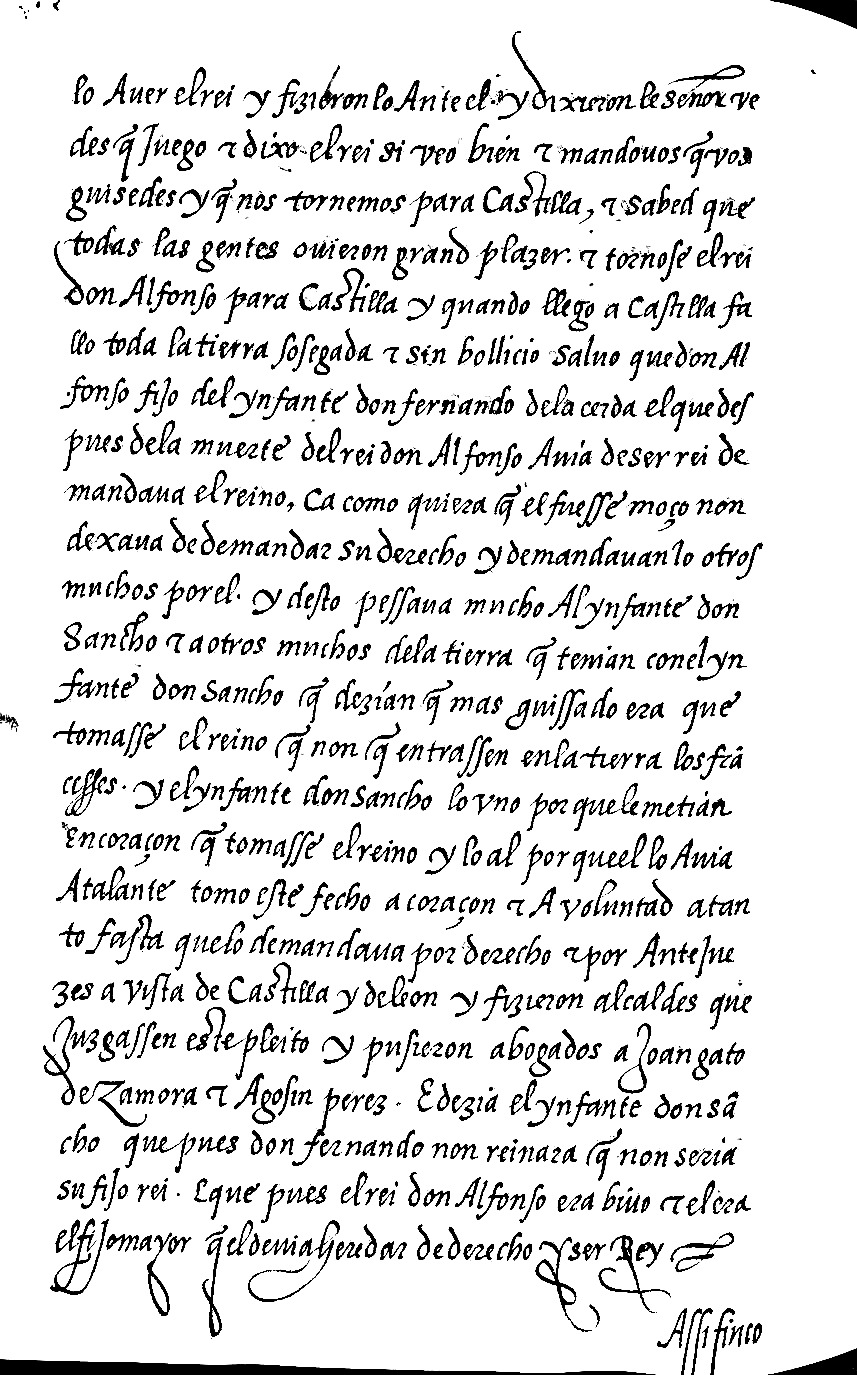 lo Auer el rei y fizieron lo Ante el. y dixieron le señor ve
des q̃ Juego τ dixo el rei si veo bien τ mandouos q̃ vos
guisedes y q̃ nos tornemos para Castilla, τ sabed que
todas las gentes ouieron grand plazer. τ tornose el rei
don Alfonso para Castilla y quando llego a Castilla fa
llo toda la tierra sosegada τ sin bollicio saluo que don Al
fonso fijo del ynfante don fernando de la cerda el que des
pues de la muerte del rei don Alfonso Auia de ser rei de
mandaua el reino, Ca como quiera q̃ el fuesse moço non
dexaua de demandar su derecho y demandauan lo otros
muchos por el. y desto pessaua mucho Al ynfante don
Sancho τ a otros muchos de la tierra q̃ tenian con el yn
fante don Sancho q̃ dezian q̃ mas guissado era que
tomasse el reino q̃ non q̃ entrassen en la tierra los frã
cesses. y el ynfante don Sancho lo vno por que le metian
En coraçon q̃ tomasse el reino y lo al por que el lo Auia
Atalante tomo este fecho a coraçon τ A voluntad a tan
to fasta que lo demandaua por derecho τ por Ante Jue
zes a vista de Castilla y de leon y fizieron alcaldes que
Juzgassen este pleito y pusieron abogados a Joan gato
de Zamora τ Agosin perez. E dezia el ynfante don sã
cho que pues don fernando non reinara q̃ non seria
su fijo rei. E que pues el rei don Alfonso era biuo τ el era
el fijo mayor q̃ el deuia Heredar de derecho y ser Rey
Assi finco